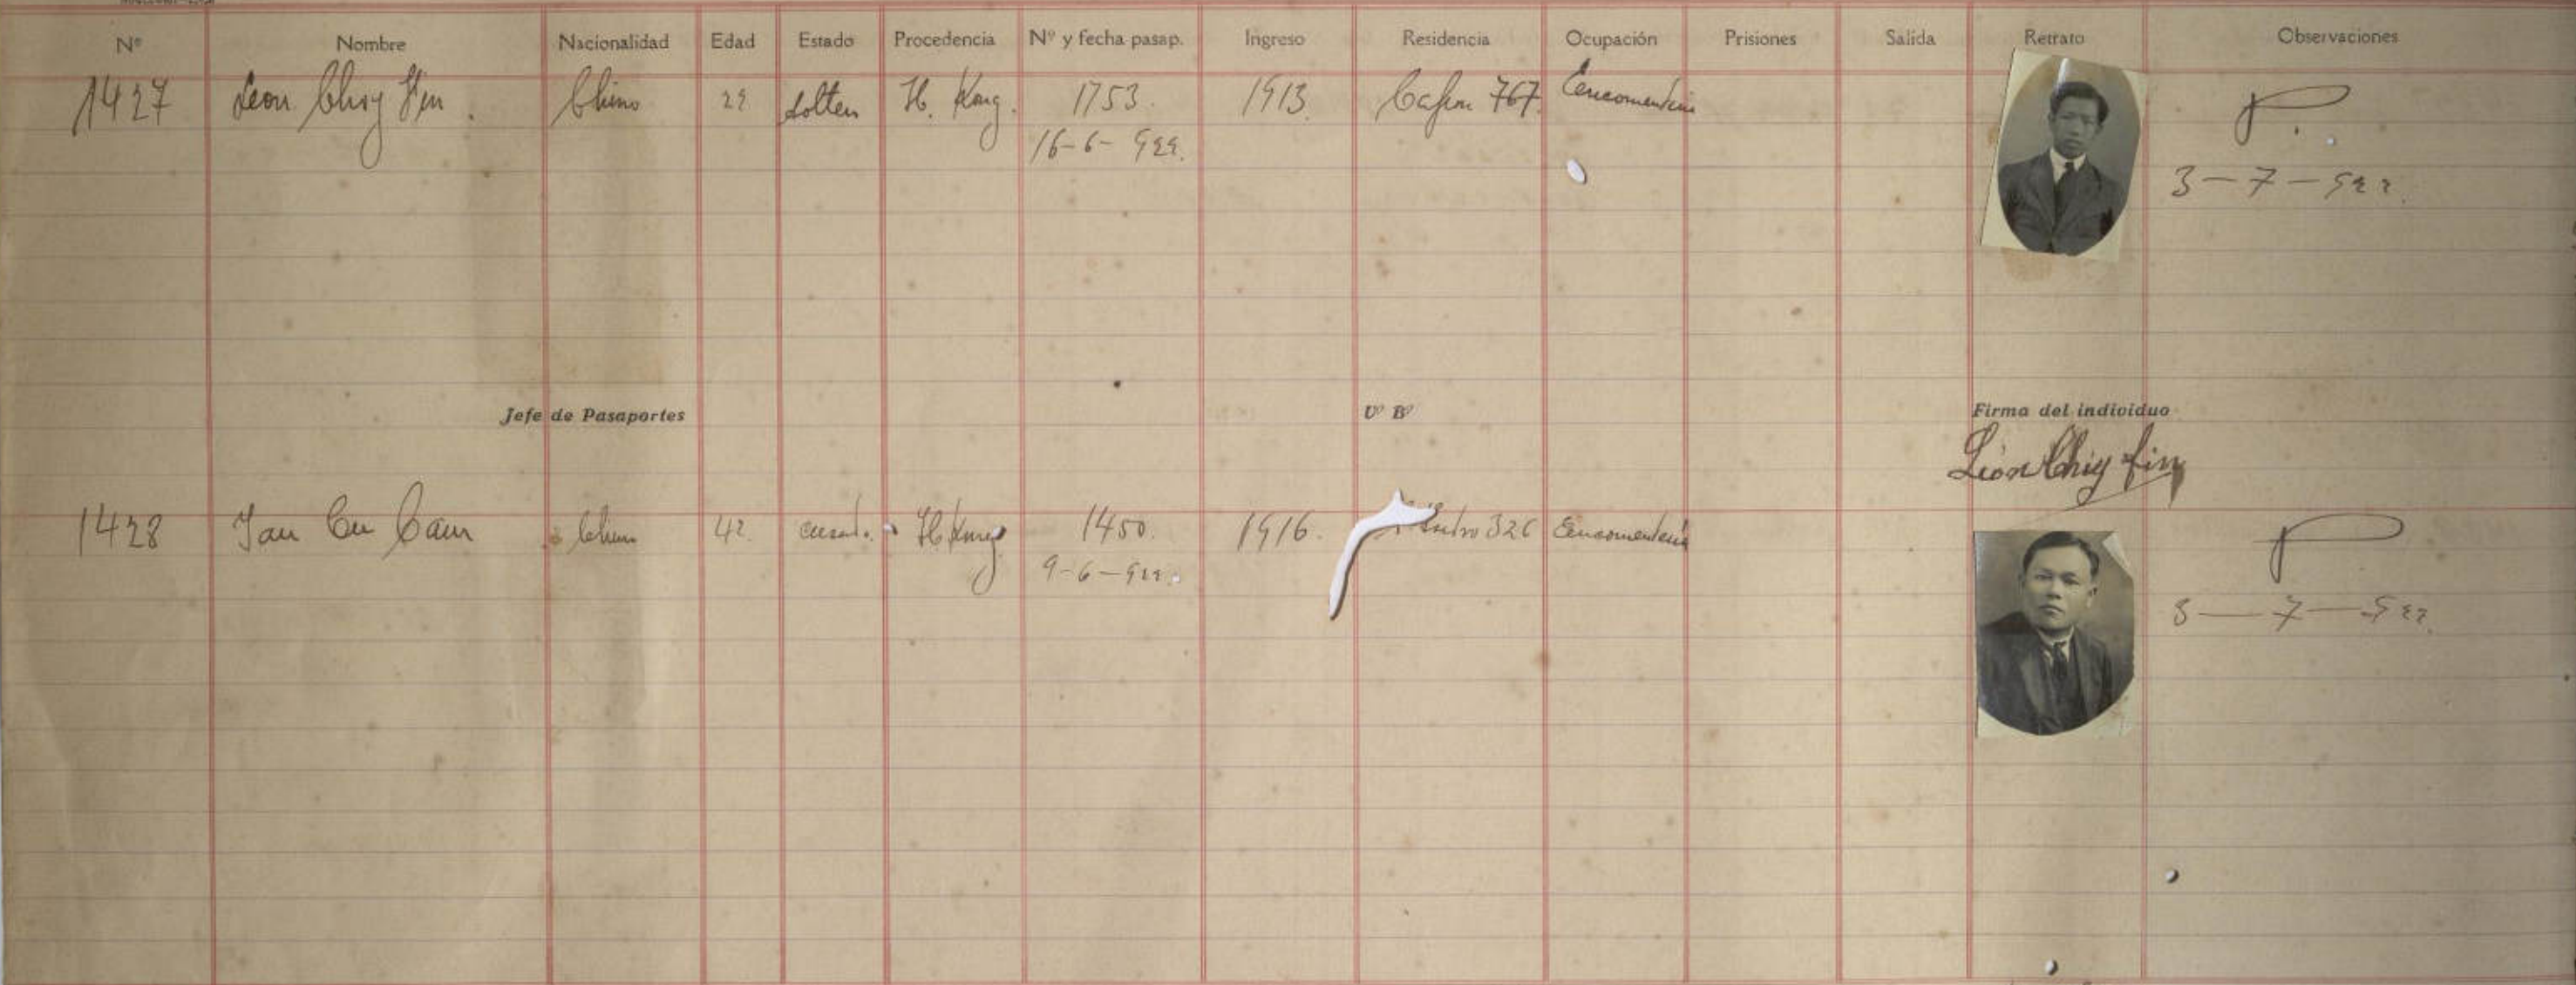 Nº Nombre Nacionalidad Edad Estado Procedencia Nº y fecha pasap. Ingreso Residencia Ocupación Prisiones Salida Retrato Observaciones
1427 Leon Choy Hin. Chino 29 solten H. Kong. 1753. 1913. Cafon 767. Encomendero P.
16-6-922. 3-7-922.
Jefe de Pasaportes Vº Bº Firma del individuo
León Chiy fin
1428 Cu Cam Chino 42. casado. H Kong 1450. 1916. 326 Encomendero P
9-6-922. 3-7-922.